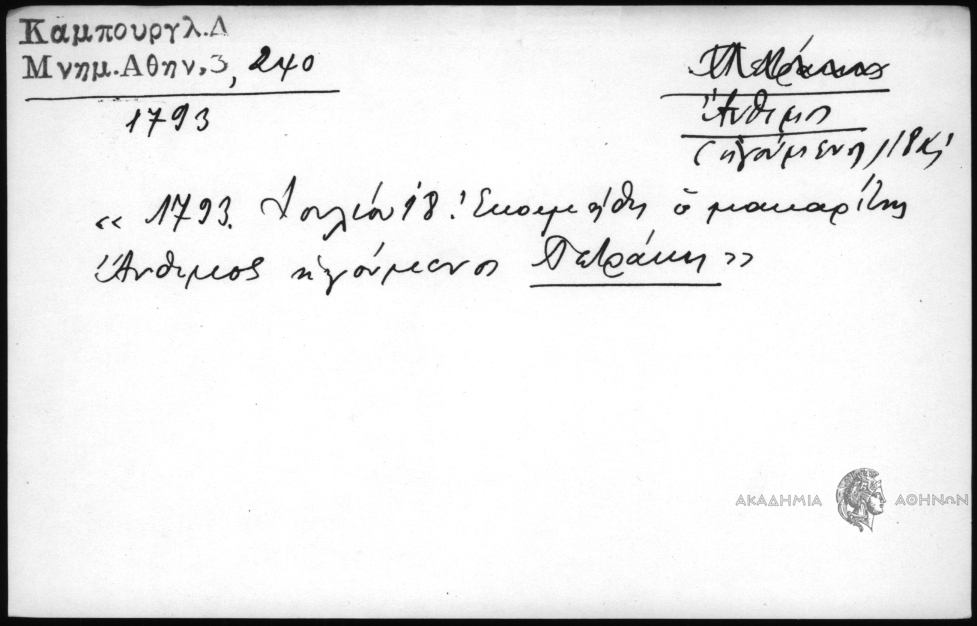 Καμπουργλ.Δ
Μνημ.Αθην.3, 240
1793
Πετράκης
Ἄνθιμος
(ἡγούμενος) 18
« 1793. Ἰουλίου 18. Ἐκοιμήθη ὁ μακαρίτης
Ἄνθιμος ἡγούμενος Πετράκη »
ΑΚΑΔΗΜΙΑ ΑΘΗΝΩΝ